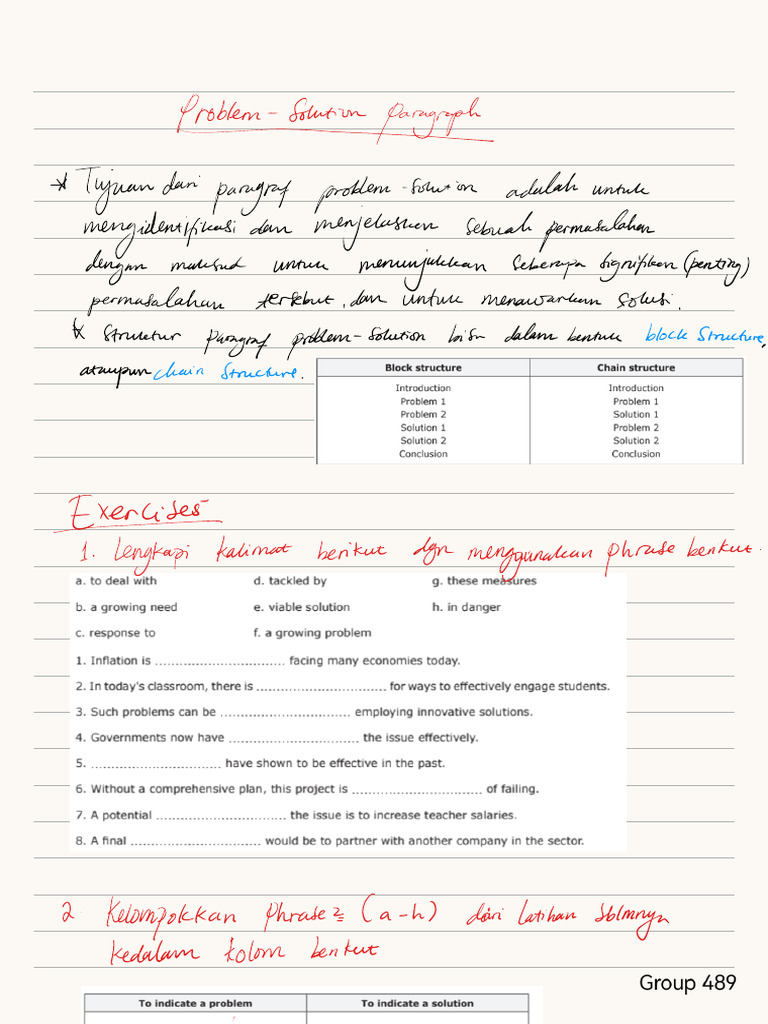 Problem - Solution Paragraph
* Tujuan dari paragraf problem-solution adalah untuk
mengidentifikasi dan menjelaskan sebuah permasalahan
dengan maksud untuk menunjukkan seberapa signifikan (penting)
permasalahan tersebut, dan untuk menawarkan solusi.
* Struktur paragraf problem-solution bisa dalam bentuk block structure,
ataupun chain structure.
Block structure Chain structure
Introduction Introduction
Problem 1 Problem 1
Problem 2 Solution 1
Solution 1 Problem 2
Solution 2 Solution 2
Conclusion Conclusion
Exercises
1. Lengkapi kalimat berikut dgn menggunakan phrase berikut.
a. to deal with d. tackled by g. these measures
b. a growing need e. viable solution h. in danger
c. response to f. a growing problem
1. Inflation is ................................ facing many economies today.
2. In today's classroom, there is ................................ for ways to effectively engage students.
3. Such problems can be ................................ employing innovative solutions.
4. Governments now have ................................ the issue effectively.
5. ................................ have shown to be effective in the past.
6. Without a comprehensive plan, this project is ................................ of failing.
7. A potential ................................ the issue is to increase teacher salaries.
8. A final ................................ would be to partner with another company in the sector.
2. Kelompokkan phrase2 (a-h) dari latihan sblmnya
kedalam kolom berikut
Group 489
To indicate a problem To indicate a solution